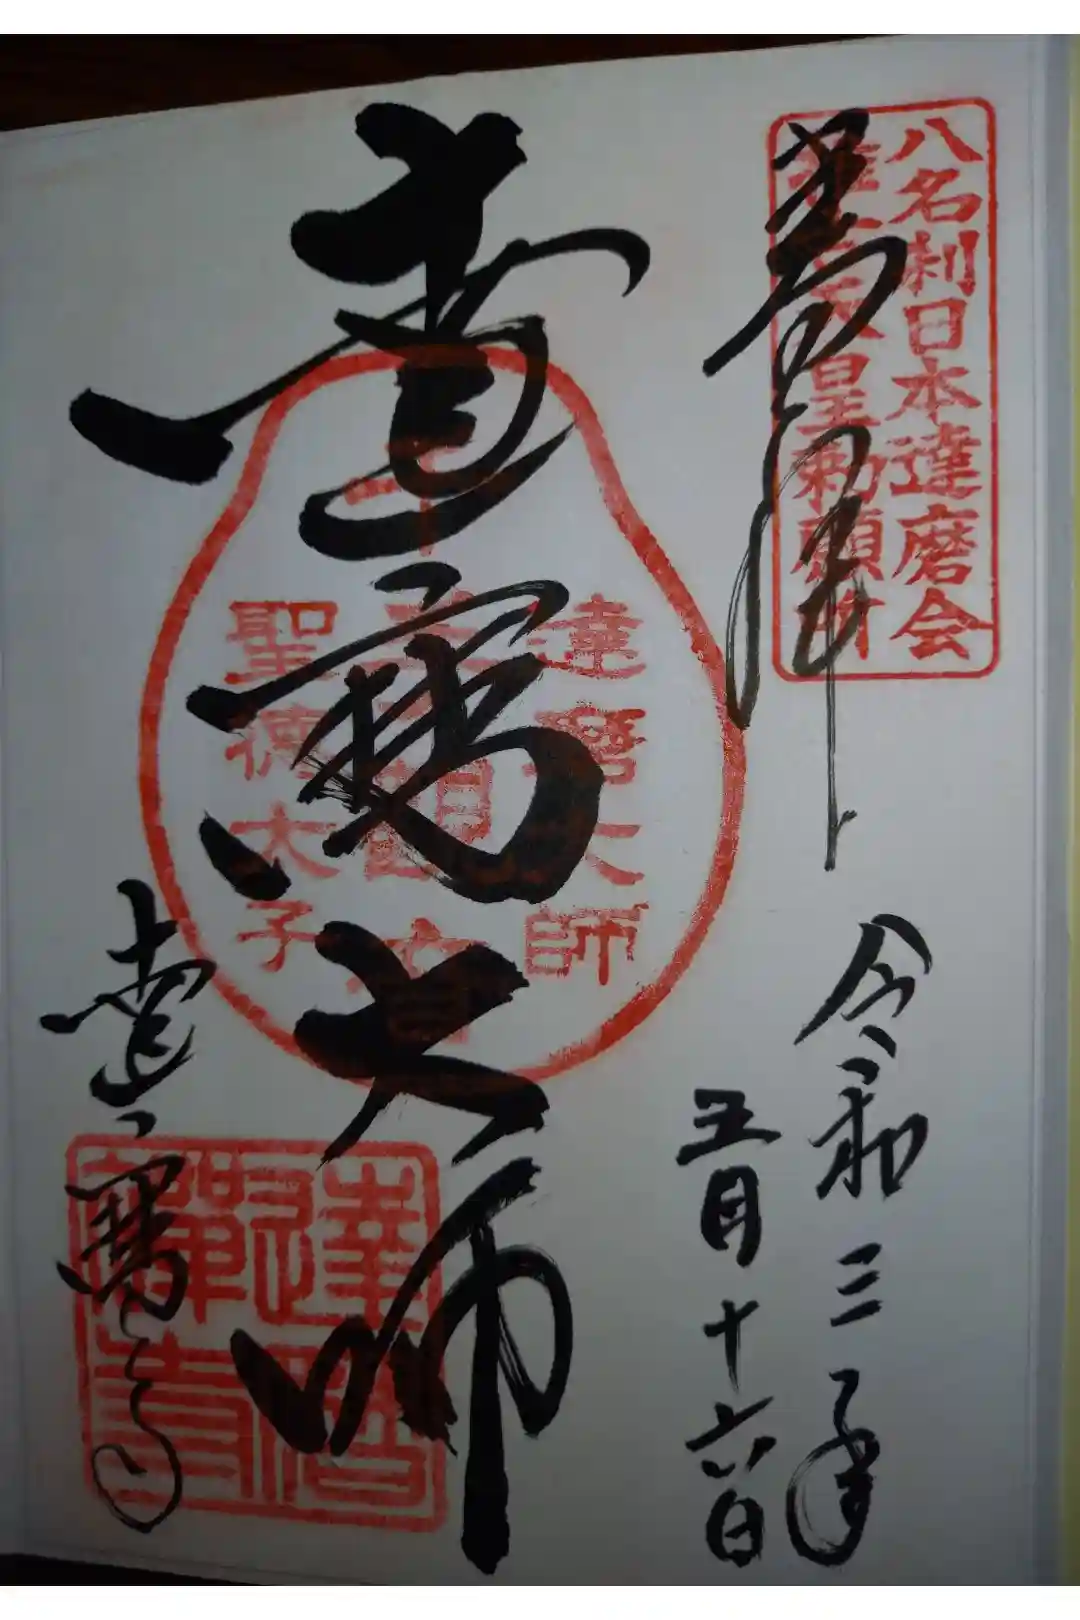 八名刹日本達磨会
天皇勅願所
奉拝
令和三年
五月十六日
達磨大師
達磨大師
聖徳太子
達磨寺